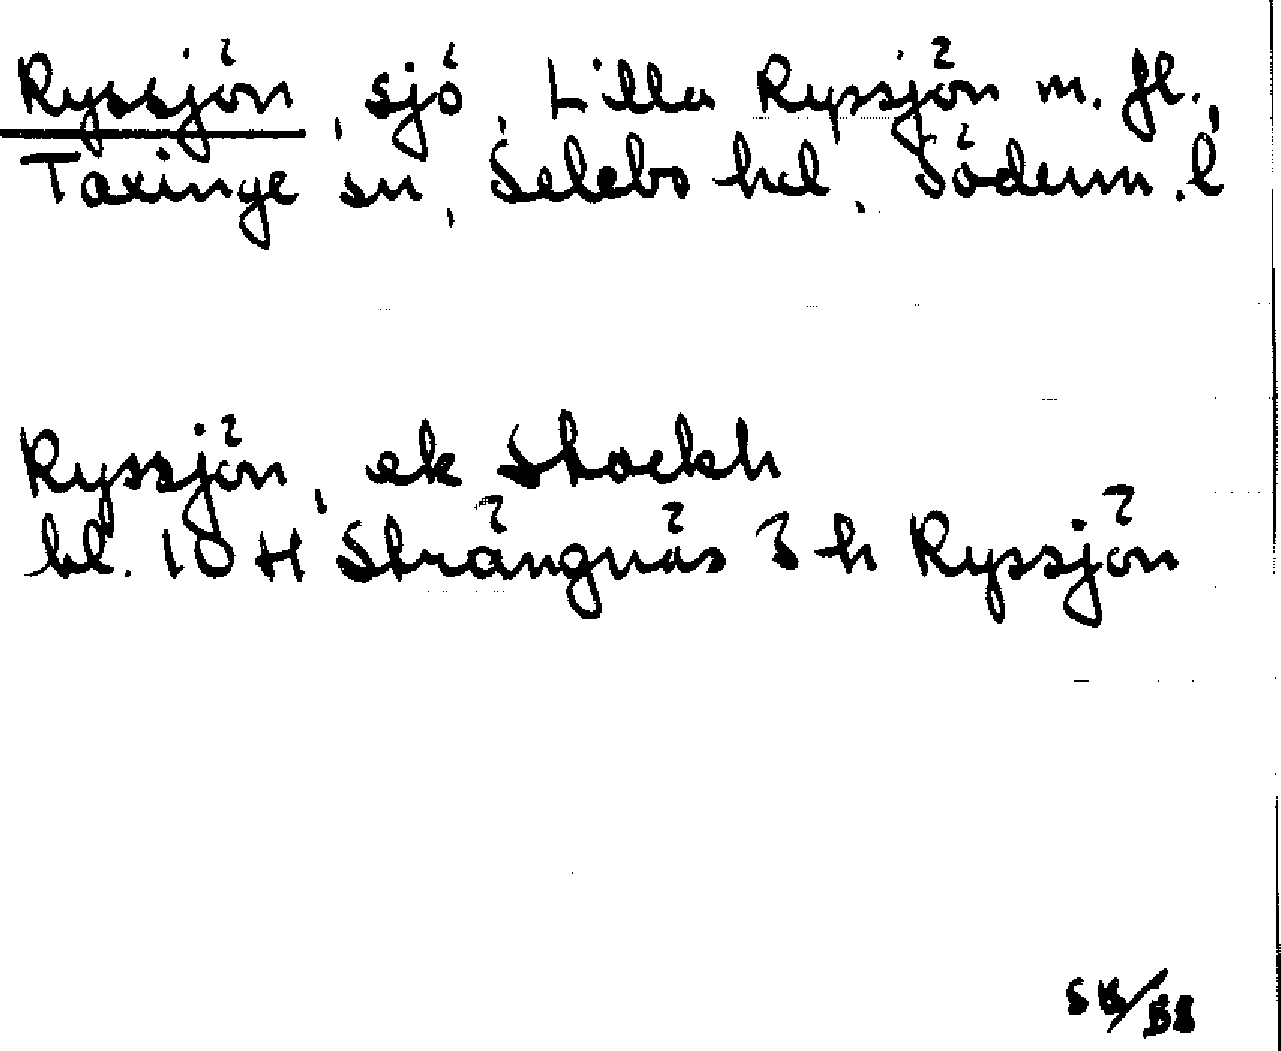 Ryssjön, sjö, Lilla Ryssjön m. fl.,
Taxinge sn, Selebo hd, Söderm. l
Ryssjön, ek Stockh
bl. 10 H Strängnäs 3 h Ryssjön